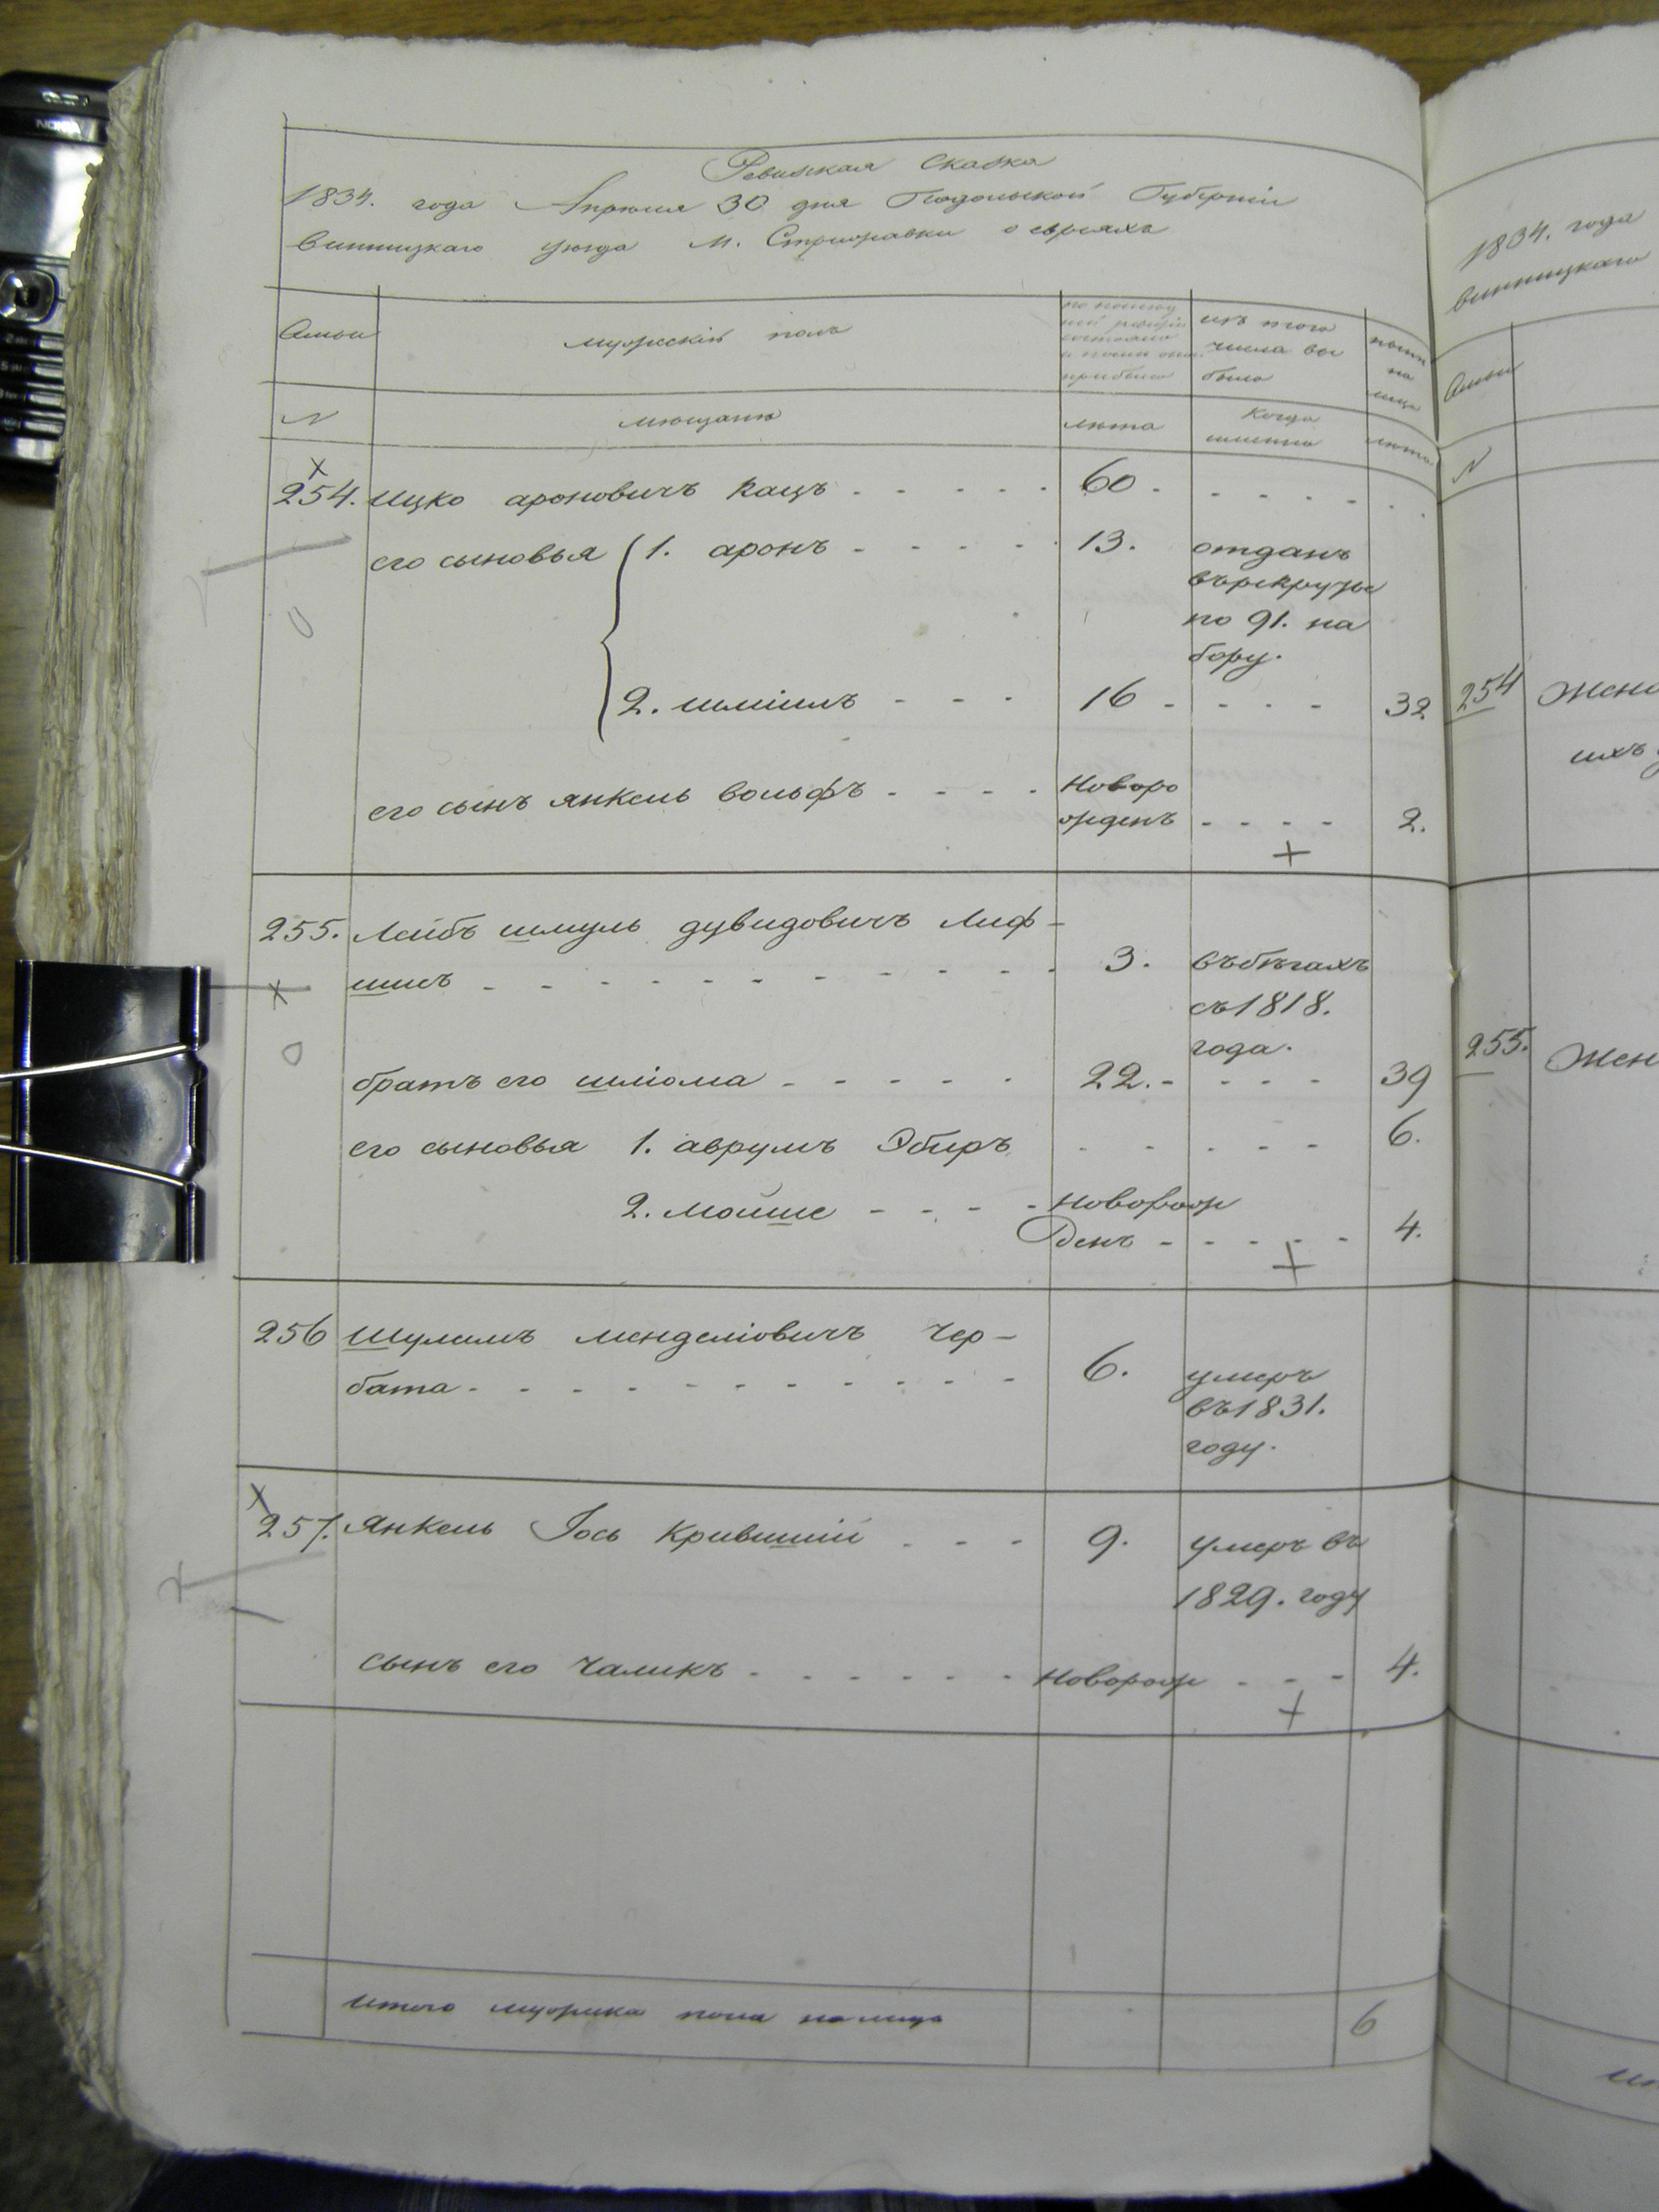 Ревизская Сказка
1834. года Апреля 30 дня Подольской Губернiи
винницкаго уѣзда М. Стрижавки о евреяхъ
Семьи
мужескiй полъ
по послед
ней ревизiи
состояло
и после оной
прибыло
изъ того
числа вы
было
нынѣ
на
лицо
N
мѣщанѣ
лѣта
Когда
именно
лѣта
254. Ицко ароновичъ Кацъ - - - - - 60 - - - - -
его сыновья 1. аронъ - - - - - 13. отданъ
въ рекруты
по 91. на
бору.
2. шмiилъ - - - 16 - - - - 32
его сынъ янкель вольфъ - - - - Новоро
жденъ - - - - 2.
255. Лейбъ шмуль дувидовичъ Лиф-
шисъ - - - - - - - - - - 3. въ бѣгахъ
съ 1818.
года.
братъ его шлiома - - - - - 22. - - - - 39
его сыновья 1. аврумъ Эбиръ - - - - - 6.
2. мойше - - - - Новорож
Денъ - - - - - 4.
256 Шулимъ менделiовичъ Чер-
бата - - - - - - - - - - - 6. умеръ
въ 1831.
году.
257. Янкель Iось Крившiй - - - 9. умеръ въ
1829. году
сынъ его Чаликъ - - - - - - Новорож - - - 4.
итого мужеска пола на лицо 6
1834. года
винницкаго
Семьи
N
254 Жена
ихъ
255. Жен